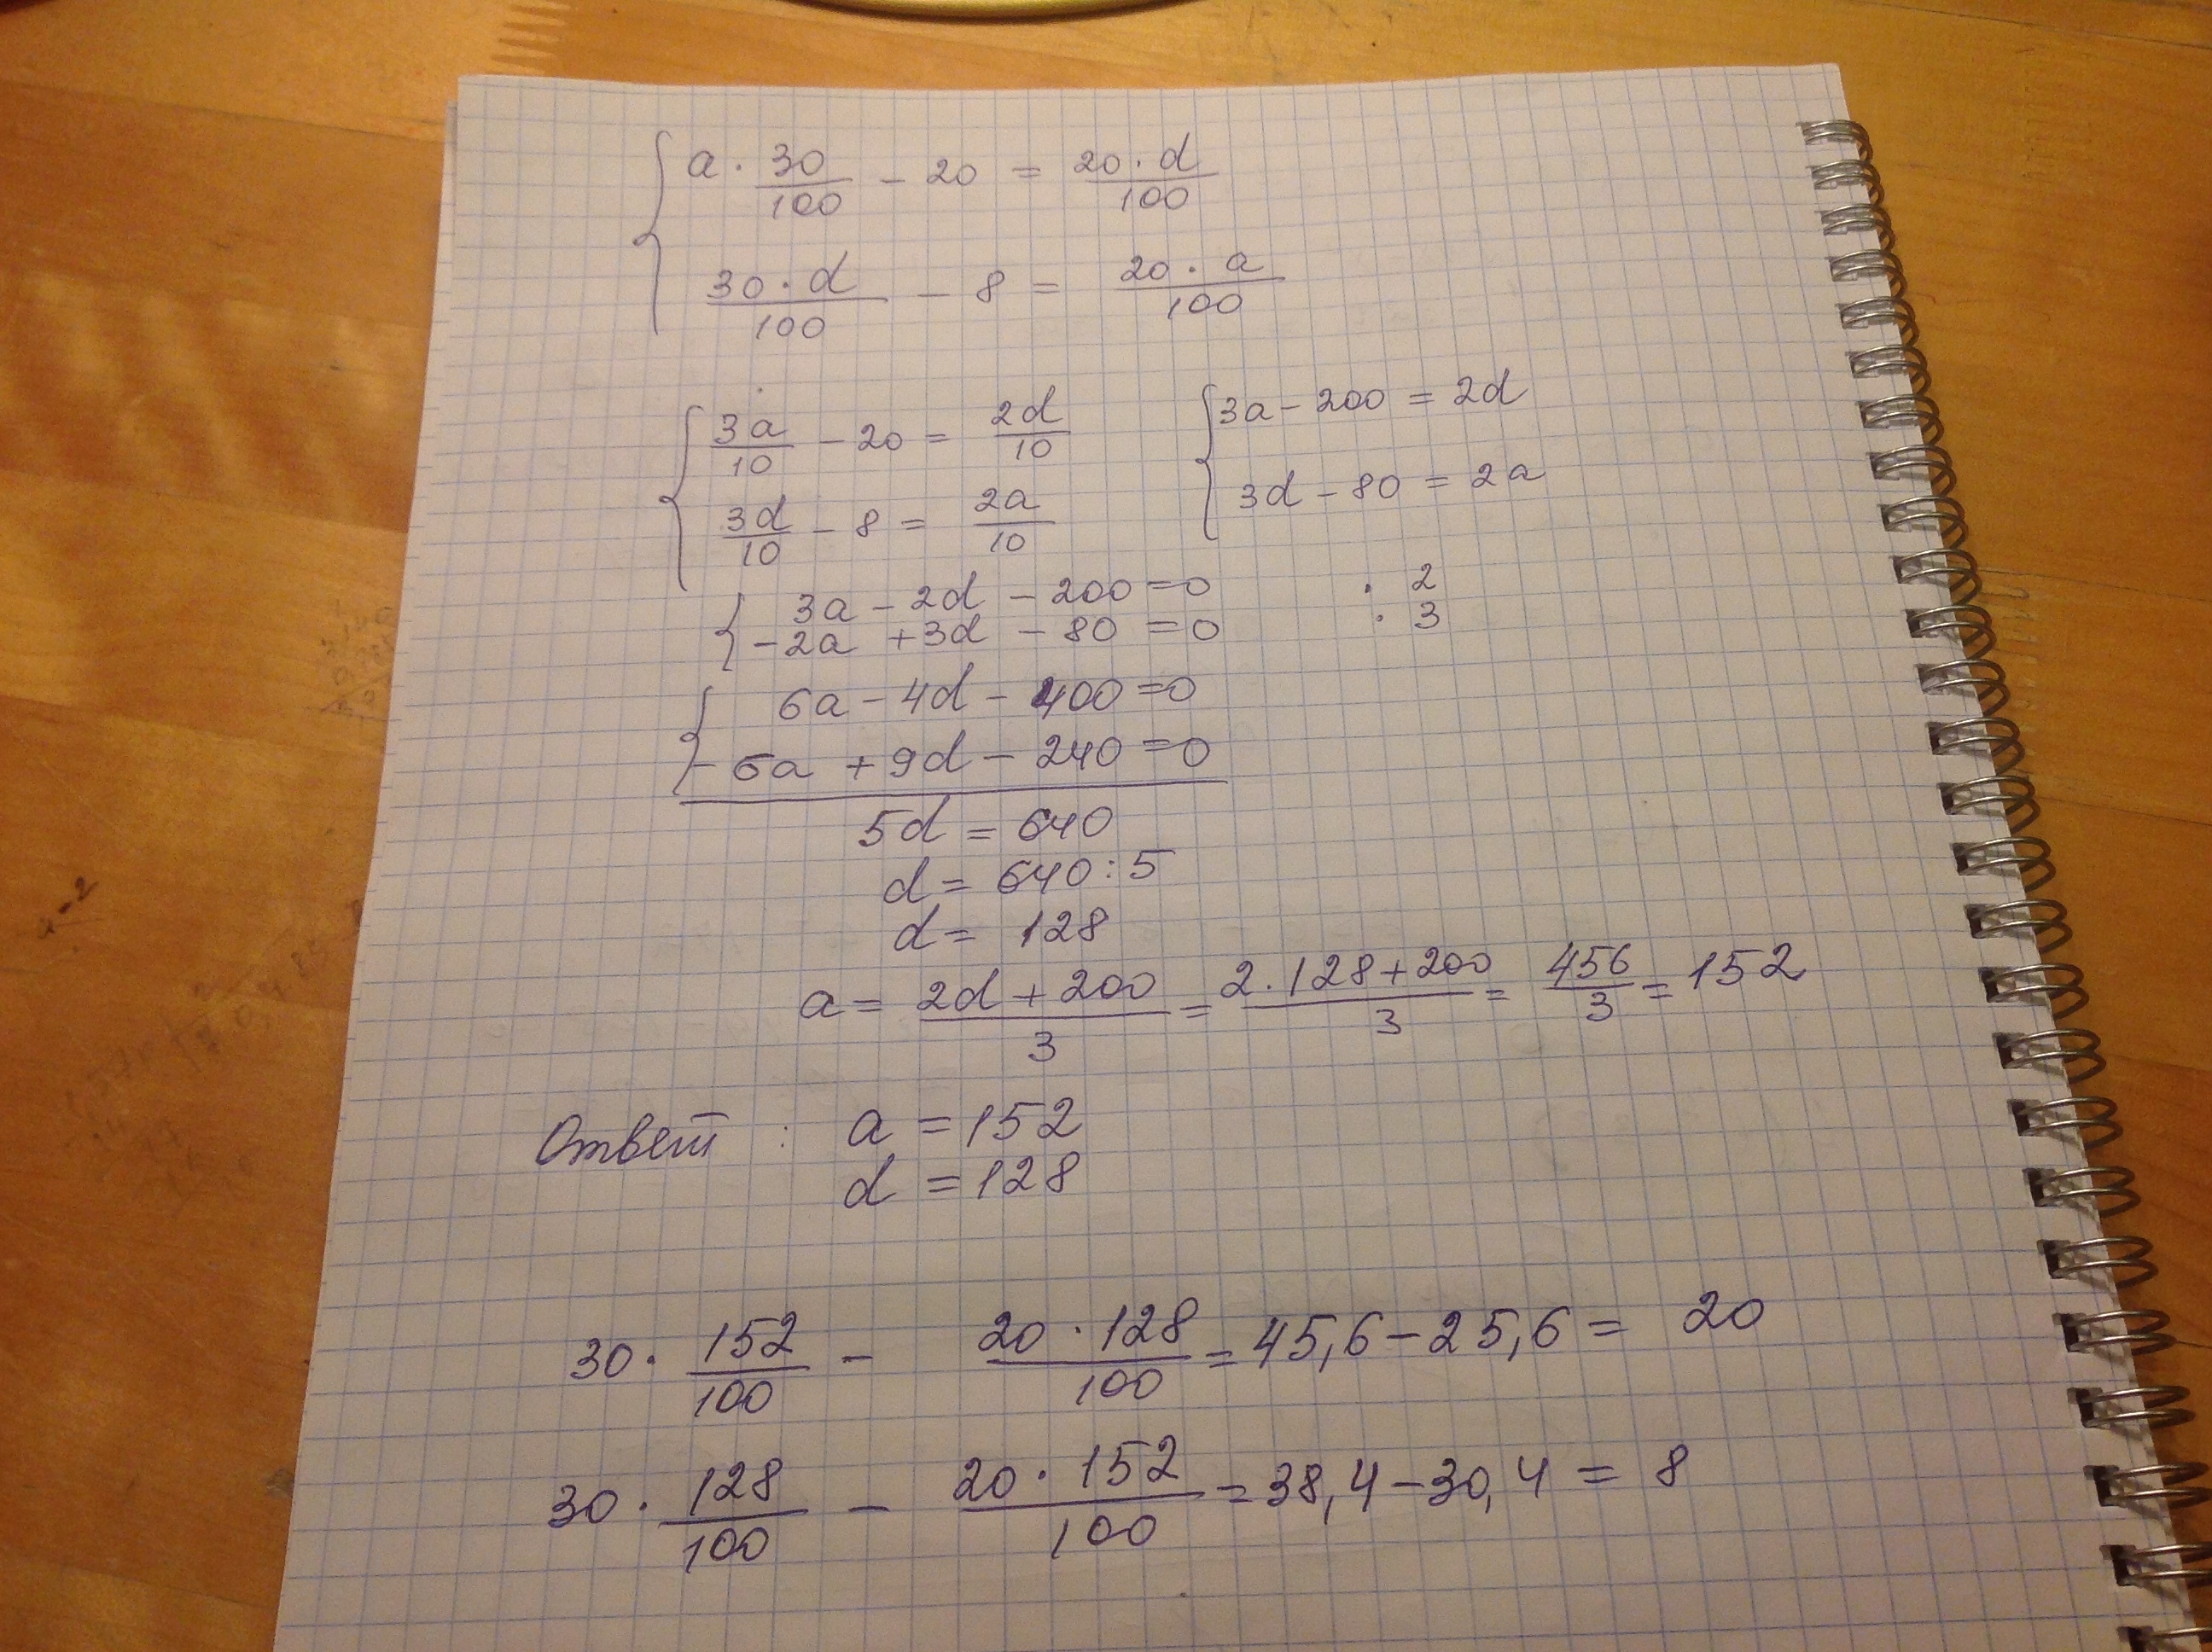 a · 30/100 - 20 = 20 · d/100
30 · d/100 - 8 = 20 · a/100
3a/10 - 20 = 2d/10
3d/10 - 8 = 2a/10
3a - 200 = 2d
3d - 80 = 2a
3a - 2d - 200 = 0 · 2
-2a + 3d - 80 = 0 · 3
6a - 4d - 400 = 0
-6a + 9d - 240 = 0
5d = 640
d = 640 : 5
d = 128
a = 2d + 200/3 = 2 · 128 + 200/3 = 456/3 = 152
Ответ : a = 152
d = 128
30 · 152/100 - 20 · 128/100 = 45,6 - 25,6 = 20
30 · 128/100 - 20 · 152/100 = 38,4 - 30,4 = 8
a - 2